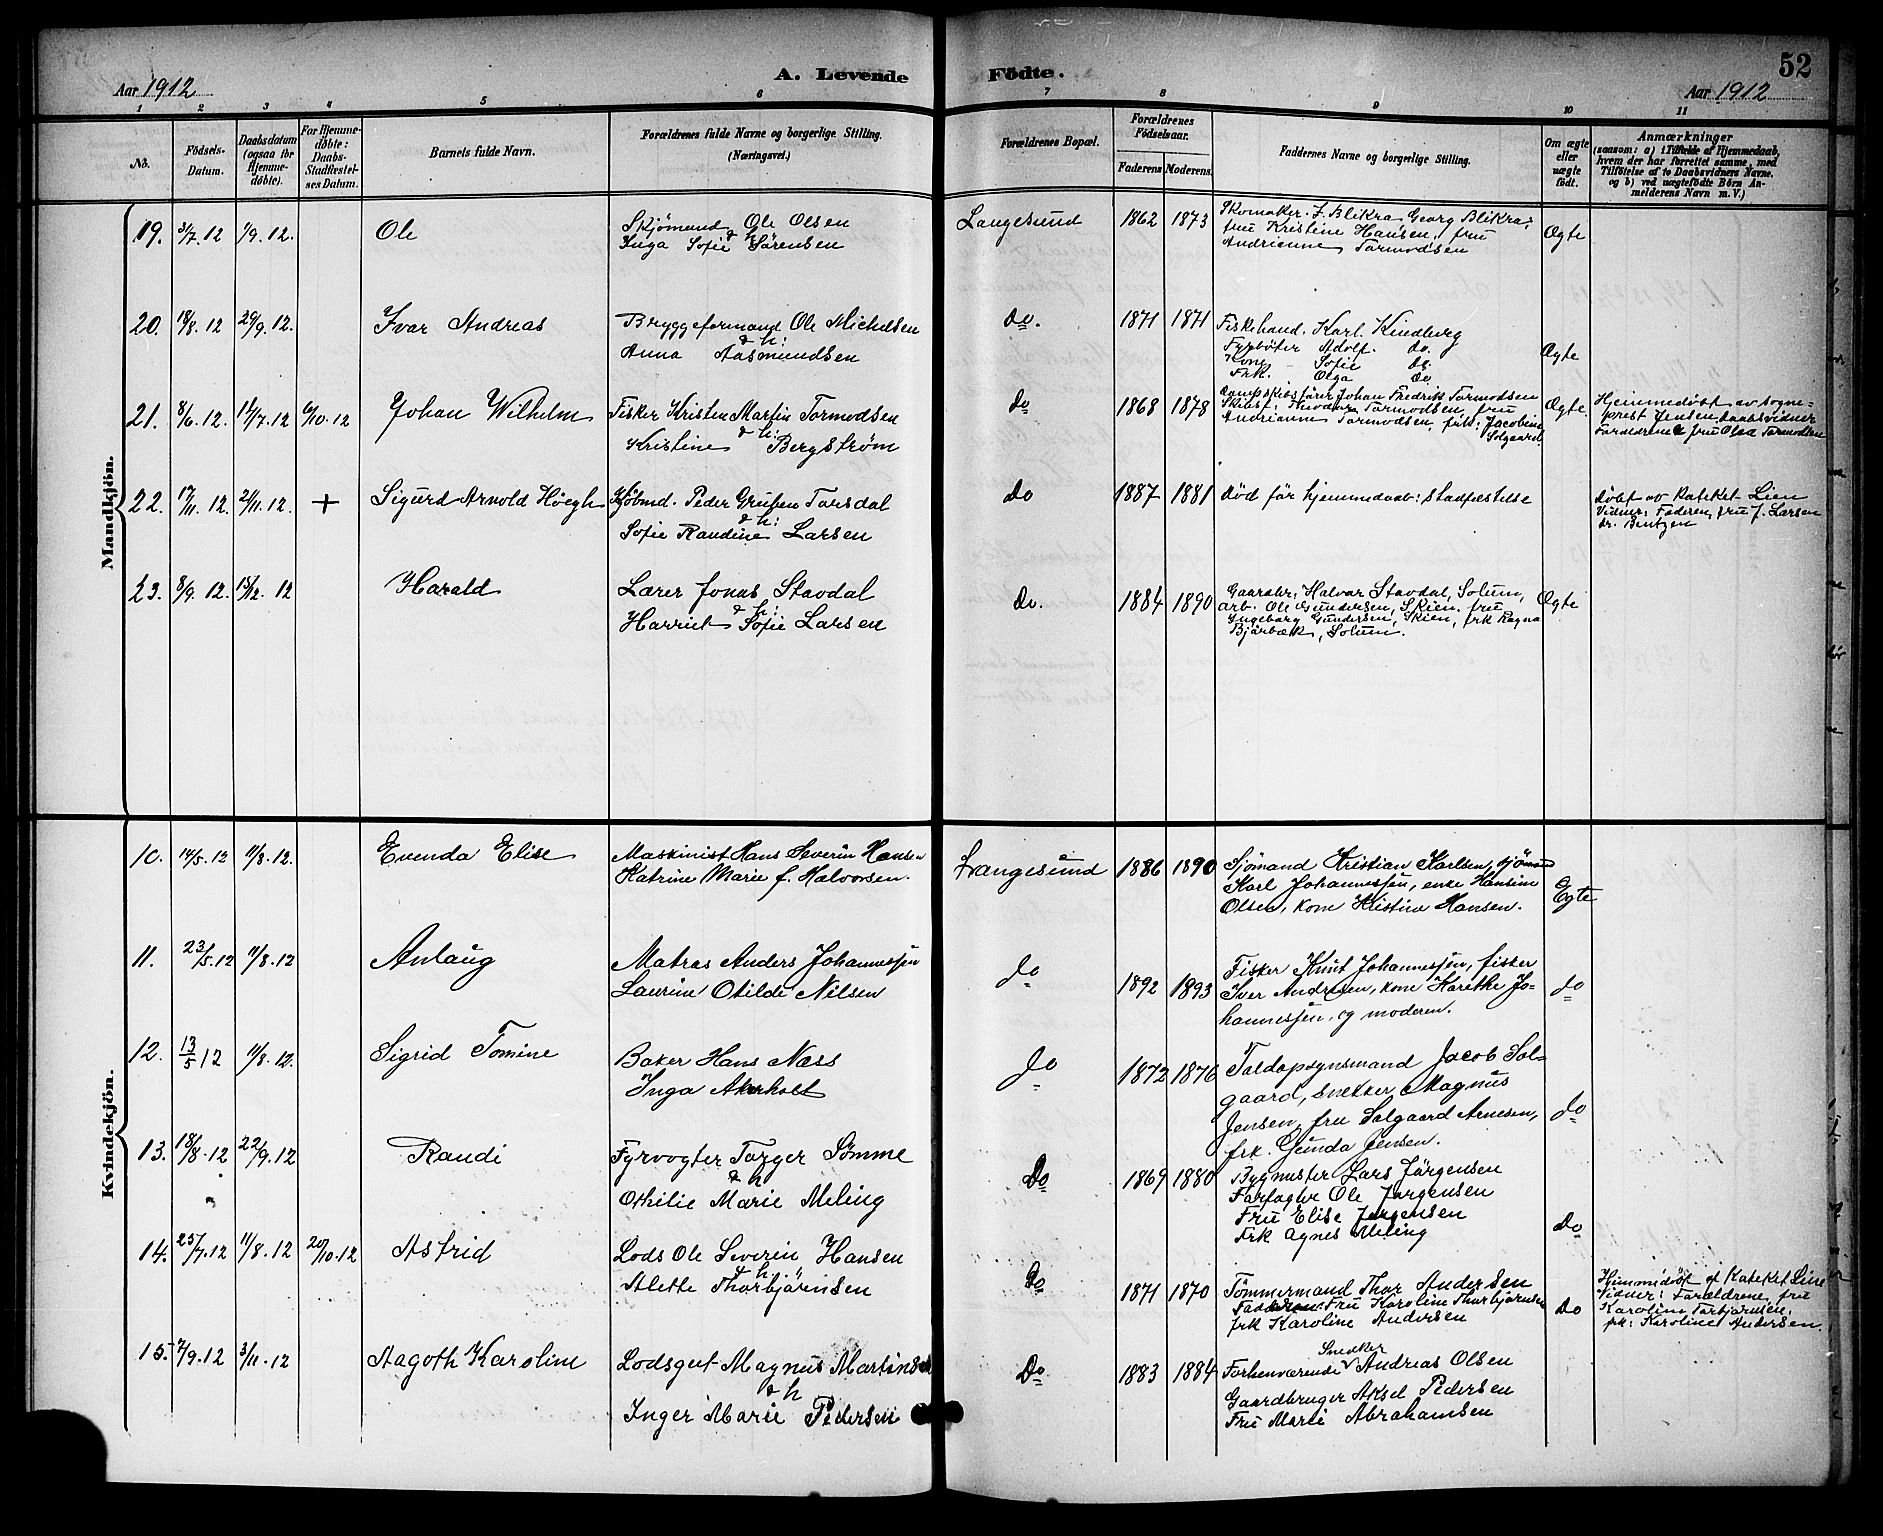 52
Aar 1912
A. Levende Födte.
Aar 1912
1 2 3 4 5 6 7 8 9 10 11
No.
Födsels-Datum.
Daabsdatum (ogsaa for Hjemme-döbte).
For Hjemme-döbte: Daabs-Stadfæstel-ses Datum.
Barnets fulde Navn.
Forældrenes fulde Navne og borgerlige Stilling. (Næringsvei.)
Forældrenes Bopæl.
Forældrenes Födselsaar.
Faderens Moderens
Faddernes Navne og borgerlige Stilling.
Om ægte eller uægte födt.
Anmærkninger
(saasom: a) i Tilfælde af Hjemmedaab, hvem der har forrettet samme, med Tilföielse af to Daabsvidners Navne. og b) ved uægtefödte Börn An-melderens Navn m. V.)
Mandkjön.
19. 3/7.12 1/9.12. Ole
Skjömand Ole Olsen
& h
Inga Sofie Sörensen
Langesund 1862 1873
Skomaker J. Blikra, Georg Blikra,
fru Kristine Hansen, fru
Andrianne Tormodsen
Ægte
20. 18/8.12 29/9.12. Ivar Andreas
Bryggeformand Ole Michelsen
& h:
Anna Aasmundsen
do. 1871 1871
Fiskehand. Karl Kindberg
Fyrböter Adolf do.
Kone Sofie do.
Frk. Olga do
Ægte
21. 8/6.12. 14/7.12 6/10.12 Johan Wilhelm
Fisker Kristen Martin Tormodsen
& h:
Kristine Bergström
do 1868 1878
Dampskibsförer Johan Fredrik Tormodsen
Tormodsen, fru
Andrianne Tormodsen, frk: Jacobine
Solgaard
Ægte.
Hjemmedöbt av sogne-
prest Jensen. Daabsvidner
Forældrene & fru Olea Tormodsen
22. 17/11.12. 21/11.12. + Sigurd Arnold Höegh
Kjöbmd. Peder Torsdal
& h:
Sofie Randine Larsen
do 1887 1881
Död för hjemmedaab: stadfæstelse
Döbt av Kateket Lien
Vidner: Faderen, fru J. Larsen
dr. Bentzen
23. 8/9.12. 15/12.12 Harald
Lærer Jonas Stavdal
& h:
Harriet Sofie Larsen
do. 1884 1890
Gaardbr. Halvor Stavdal, Solum,
arb. Ole Gundersen, Skien, fru
Ingeborg Gundersen, Skien, frk Ragna
Bjärbæk, Solum.
Ægte
Kvindekjön.
10. 14/5.12 11/8.12. Evenda Elise
Maskinist Hans Severin Hansen
Katrine Marie f. Halvorsen.
Langesund 1886 1890
Sjömand Kristian Karlsen, sjömand
Karl Johannessen, enke Hansine
Olsen, kone Kristine Hansen.
Egte
11. 23/5.12 11/8.12 Anlaug
Matros Anders Johannessen
Laurine Otilde Nilsen
do 1892 1893
Fisker Knut Johannessen, fisker
Iver Andresen, kone Karethe Jo-
hannessen, og moderen.
do
12. 13/5 12 11/8.12. Sigrid Tomine
Baker Hans Næss
Inga Akerholt
do 1872 1876
Toldopsynsmand Jacob Sol-
gaard, snekker Magnus
Jensen, fru Solgaard Arnesen,
frk. Gunda Jensen.
do
13. 18/8.12 22/9.12 Randi
Fyrvogter Torger Sömme
& h
Othilie Marie Meling
Do 1869 1880
Bygmester Lars Jörgensen
Ole Jörgensen
Fru Elise Jörgensen
Frk Agnes Meling
Do
14. 25/7.12 11/8.12 20/10.12 Astrid
Lods Ole Severin Hansen
& h
Alette Thorbjörnsen
Do 1871 1870
Tömmermand Thor Andersen
Faderen. Fru Karoline Thorbjörnsen
frk Karoline Andersen
Do
Hjemmedöbt af Kateket Line
Vidner: Forældrene, fru
Karoline Torbjörnsen,
frk: Karoline Andersen.
15. 7/9.12 3/11.12 Aagoth Karoline
Lodsgut Magnus Martinsen
& h
Inger Marie Pedersen
Do 1883 1884
Snedker
Forhenværende Andreas Olsen
Gaardbruger Aksel Pedersen
Fru Marie Abrahamsen